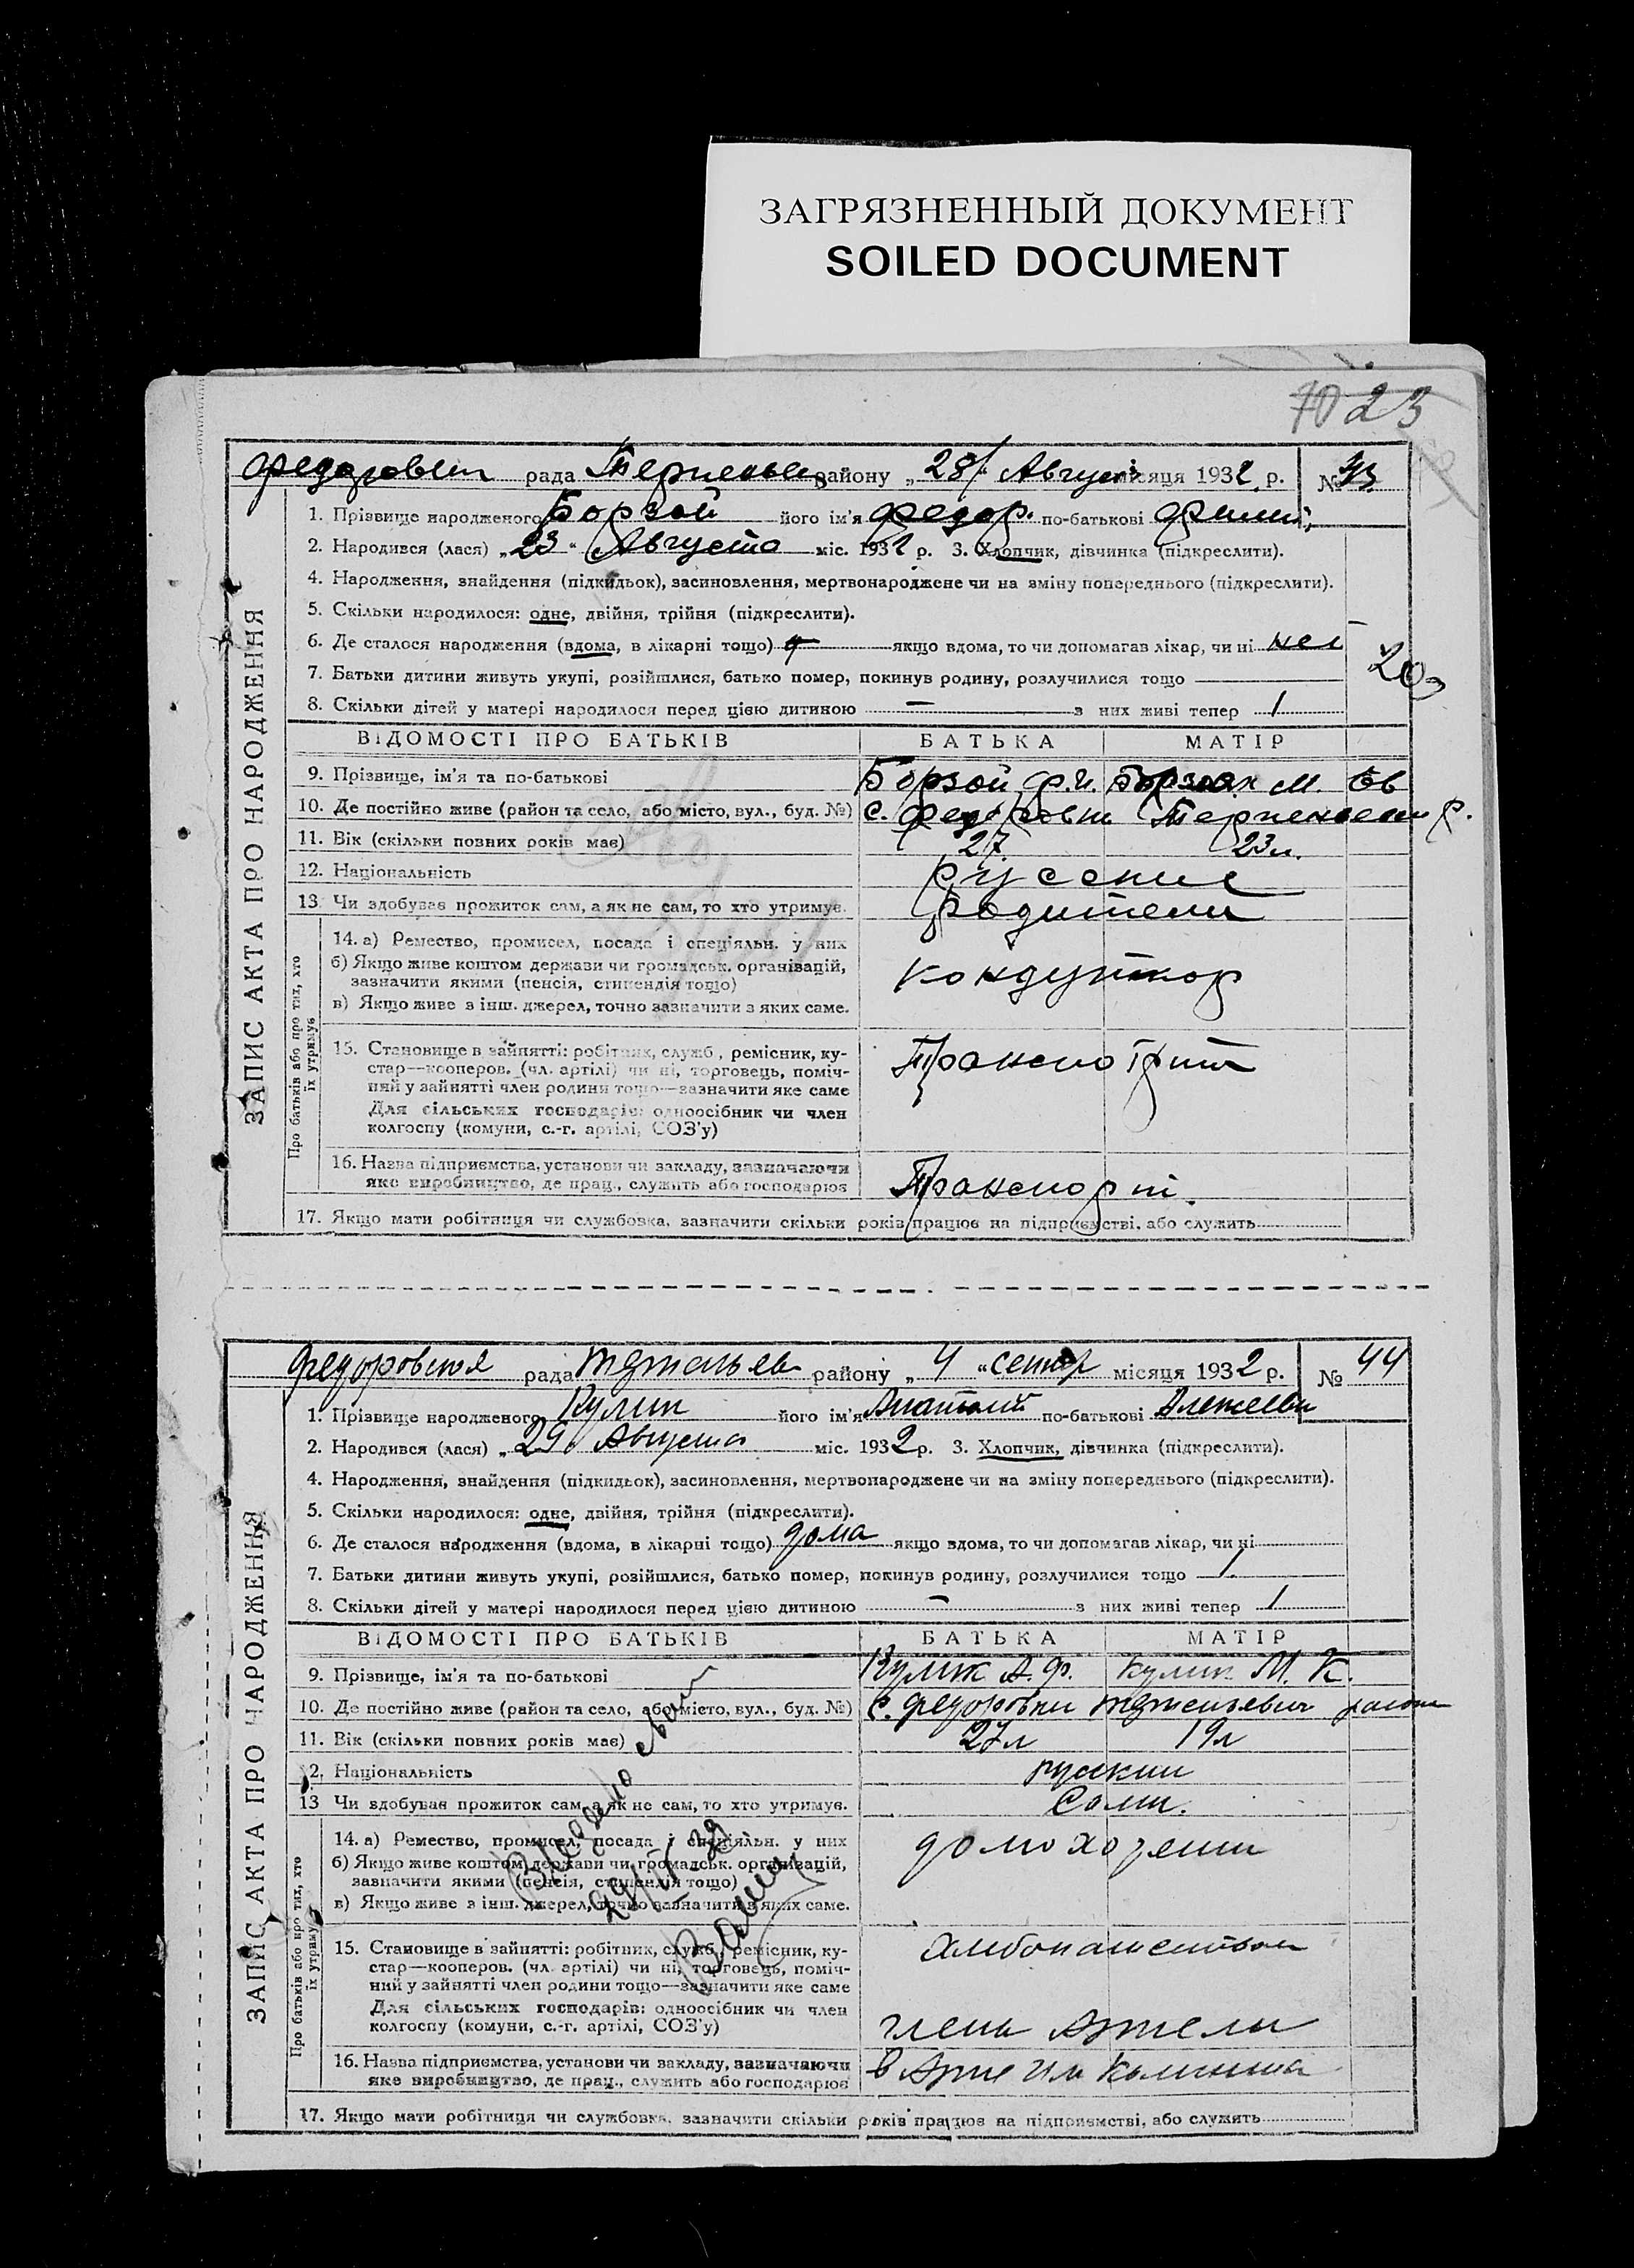 ЗАГРЯЗНЕННЫЙ ДОКУМЕНТ
SOILED DOCUMENT
70 23
рада району „28“ Августа місяця 1932 р. № 43
1. Прізвище народженого Борзой його ім'я Федор. по-батькові
2. Народився (лася) „23“ Августа міс. 1932 р. 3. Хлопчик, дівчинка (підкреслити).
4. Народження, знайдення (підкидьок), засиновлення, мертвонароджене чи на зміну попереднього (підкреслити).
5. Скільки народилося: одне, двійня, трійня (підкреслити).
6. Де сталося народження (вдома, в лікарні тощо) якщо вдома, то чи допомагав лікар, чи ні нет
7. Батьки дитини живуть укупі, розійшлися, батько помер, покинув родину, розлучилися тощо
8. Скільки дітей у матері народилося перед цією дитиною — з них живі тепер 1
ЗАПИС АКТА ПРО НАРОДЖЕННЯ
ВІДОМОСТІ ПРО БАТЬКІВ БАТЬКА МАТІР
9. Прізвище, ім'я та по-батькові Борзой Ф.И. М.
10. Де постійно живе (район та село, або місто, вул., буд. №) с. Федоровки р.
11. Вік (скільки повних років має) 27. 23 л.
12. Національність русские
13. Чи здобуває прожиток сам, а як не сам, то хто утримує. родители
Про батьків або про тих, хто їх утримує
14. а) Ремество, промисел, посада і спеціяльн. у них
б) Якщо живе коштом держави чи громадськ. організацій,
зазначити якими (пенсія, стипендія тощо) кондуктор
в) Якщо живе з інш. джерел, точно зазначити з яких саме.
15. Становище в зайнятті: робітник, служб., ремісник, ку-
стар—кооперов. (чл. артілі) чи ні, торговець, поміч-
ний у зайнятті член родини тощо—зазначити яке саме
Для сільських господарів: одноосібник чи член
колгоспу (комуни, с.-г. артілі, СОЗ'у)
16. Назва підприємства, установи чи закладу, зазначаючи
яке виробництво, де прац., служить або господарює Транспорт.
17. Якщо мати робітниця чи службовка, зазначити скільки років працює на підприємстві, або служить
Федоровская рада району „4“ сентяр місяця 1932 р. № 44
1. Прізвище народженого Кулик його ім'я Анатолий по-батькові Алексееви
2. Народився (лася) „29“ Августа міс. 1932 р. 3. Хлопчик, дівчинка (підкреслити).
4. Народження, знайдення (підкидьок), засиновлення, мертвонароджене чи на зміну попереднього (підкреслити).
5. Скільки народилося: одне, двійня, трійня (підкреслити).
6. Де сталося народження (вдома, в лікарні тощо) дома якщо вдома, то чи допомагав лікар, чи ні
7. Батьки дитини живуть укупі, розійшлися, батько помер, покинув родину, розлучилися тощо 1
8. Скільки дітей у матері народилося перед цією дитиною — з них живі тепер 1
ЗАПИС АКТА ПРО НАРОДЖЕННЯ
ВІДОМОСТІ ПРО БАТЬКІВ БАТЬКА МАТІР
9. Прізвище, ім'я та по-батькові Кулик А. Ф. Кулик М. К.
10. Де постійно живе (район та село, або місто, вул., буд. №) с. Федоровки
11. Вік (скільки повних років має) 27 л 19 л
12. Національність русские
13 Чи здобуває прожиток сам, а як не сам, то хто утримує. Сами.
Про батьків або про тих, хто їх утримує
14. а) Ремество, промисел, посада і спеціяльн. у них
б) Якщо живе коштом держави чи громадськ. організацій,
зазначити якими (пенсія, стипендія тощо)
в) Якщо живе з інш. джерел, точно зазначити з яких саме.
15. Становище в зайнятті: робітник, служб., ремісник, ку-
стар—кооперов. (чл. артілі) чи ні, торговець, поміч-
ний у зайнятті член родини тощо—зазначити яке саме
Для сільських господарів: одноосібник чи член
колгоспу (комуни, с.-г. артілі, СОЗ'у) члены Артели
16. Назва підприємства, установи чи закладу, зазначаючи
яке виробництво, де прац., служить або господарює в Арте им Калинина
17. Якщо мати робітниця чи службовка, зазначити скільки років працює на підприємстві, або служить